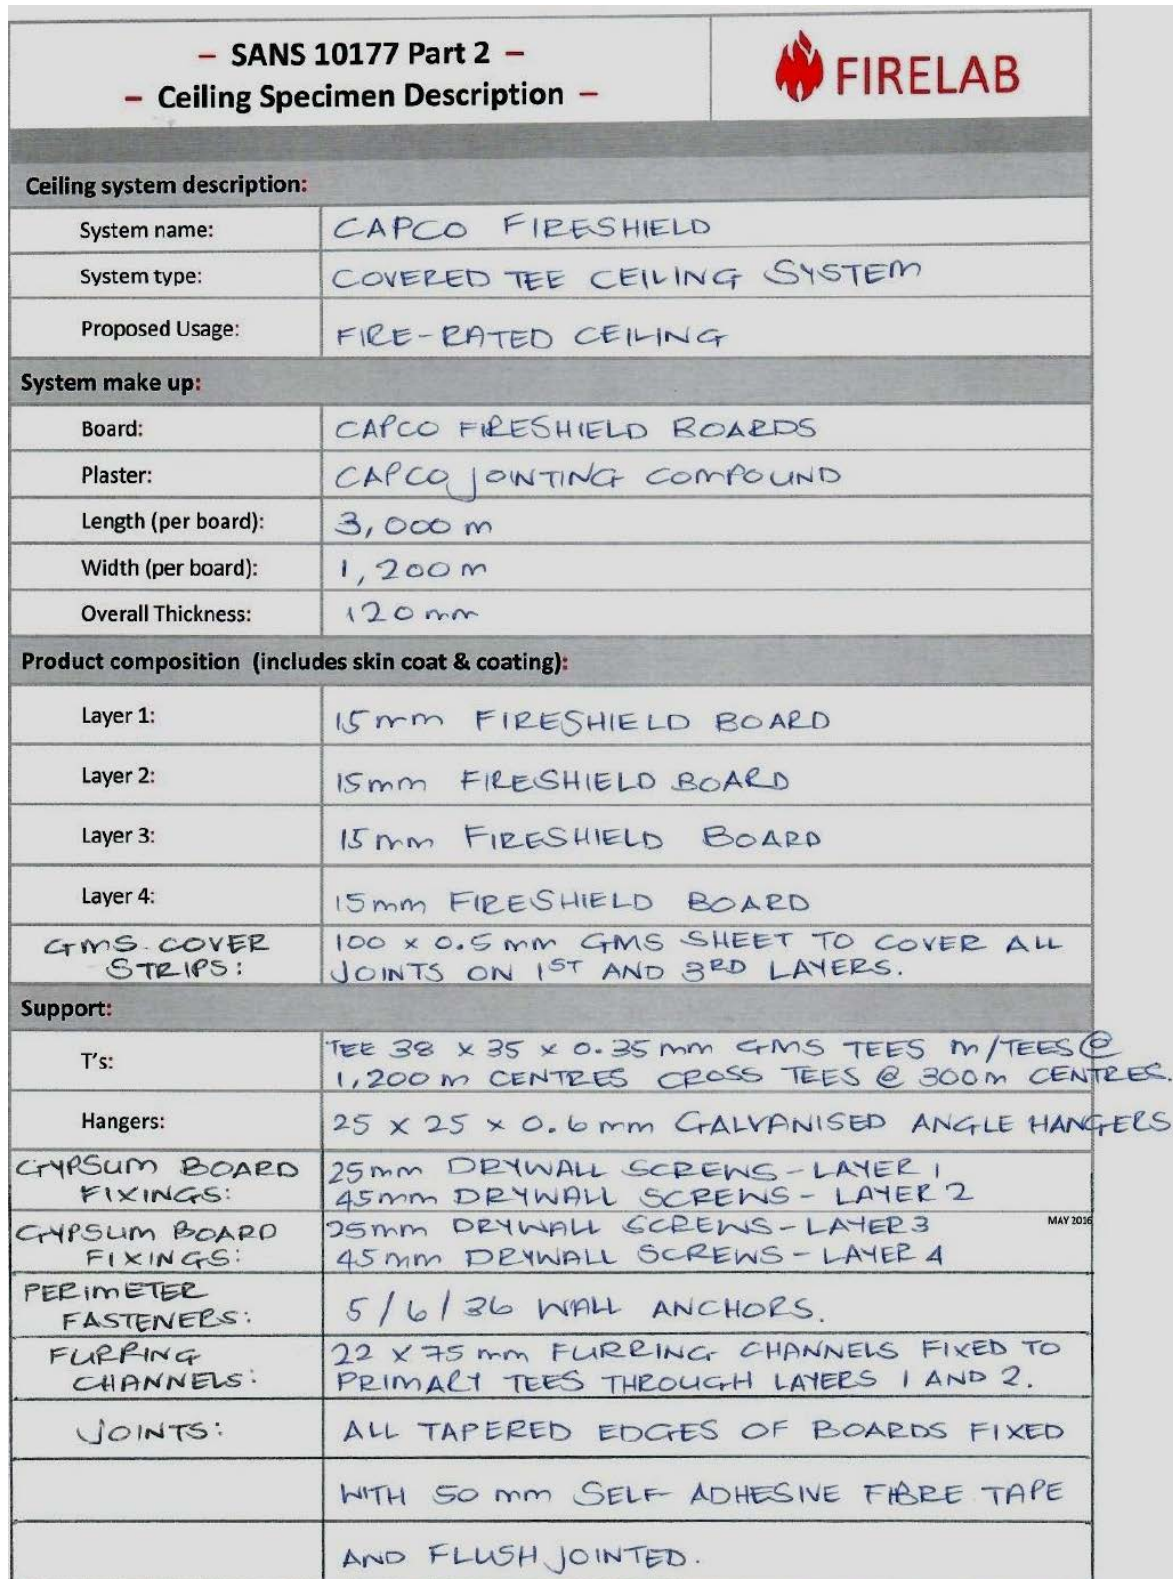 – SANS 10177 Part 2 –
– Ceiling Specimen Description –
FIRELAB
Ceiling system description:
System name: CAPCO FIRESHIELD
System type: COVERED TEE CEILING SYSTEM
Proposed Usage: FIRE-RATED CEILING
System make up:
Board: CAPCO FIRESHIELD BOARDS
Plaster: CAPCO JOINTING COMPOUND
Length (per board): 3,000 m
Width (per board): 1,200 m
Overall Thickness: 120 mm
Product composition (includes skin coat & coating):
Layer 1: 15mm FIRESHIELD BOARD
Layer 2: 15mm FIRESHIELD BOARD
Layer 3: 15mm FIRESHIELD BOARD
Layer 4: 15mm FIRESHIELD BOARD
GMS COVER 100 x 0.5 mm GMS SHEET TO COVER ALL
STRIPS: JOINTS ON 1ST AND 3RD LAYERS.
Support:
T's: TEE 38 x 35 x 0.35 mm GMS TEES M/TEES @
1,200 m CENTRES CROSS TEES @ 300m CENTRES.
Hangers: 25 x 25 x 0.6 mm GALVANISED ANGLE HANGERS
GYPSUM BOARD 25mm DRYWALL SCREWS - LAYER 1
FIXINGS: 45mm DRYWALL SCREWS - LAYER 2
GYPSUM BOARD 25mm DRYWALL SCREWS - LAYER 3 MAY 2016
FIXINGS: 45mm DRYWALL SCREWS - LAYER 4
PERIMETER
FASTENERS: 5/6/36 WALL ANCHORS.
FURRING 22 x 75 mm FURRING CHANNELS FIXED TO
CHANNELS: PRIMARY TEES THROUGH LAYERS 1 AND 2.
JOINTS: ALL TAPERED EDGES OF BOARDS FIXED
WITH 50 mm SELF ADHESIVE FIBRE TAPE
AND FLUSH JOINTED.